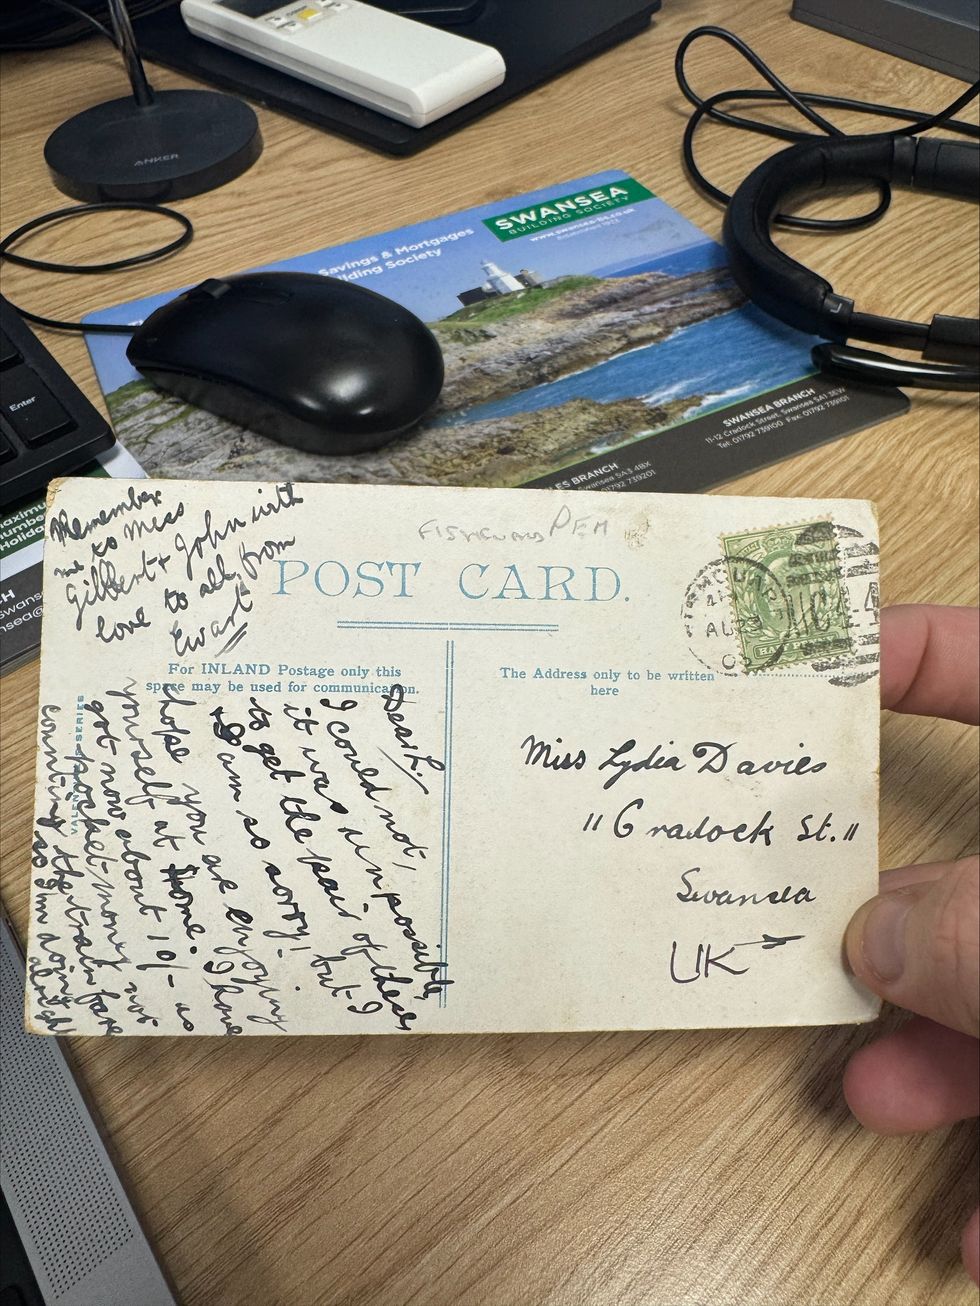 ANKER
SWANSEA
BUILDING SOCIETY
www.swansea-bs.co.uk
Established 1923
Savings & Mortgages
lding Society
Enter
SWANSEA BRANCH
11-12 Cradock Street, Swansea SA1 3EW
Tel: 01792 739100 Fax: 01792 739101
LES BRANCH
Swansea SA3 4BX
01792 739201
Remember
me to Miss
Gilbert + John with
love to all from
Ewart
PEM
POST CARD.
HALF PENNY
AU
For INLAND Postage only this
space may be used for communication.
The Address only to be written
here
SERIES
Dear L.
I could not,
it was impossible,
to get the pair of these
but I
am so sorry!
I hope you are enjoying
yourself at home. I have
got now about 10/- as
pocket money not
counting the train fare
so I'm doing
alright
Miss Lydia Davies
"Cradock St."
Swansea
UK